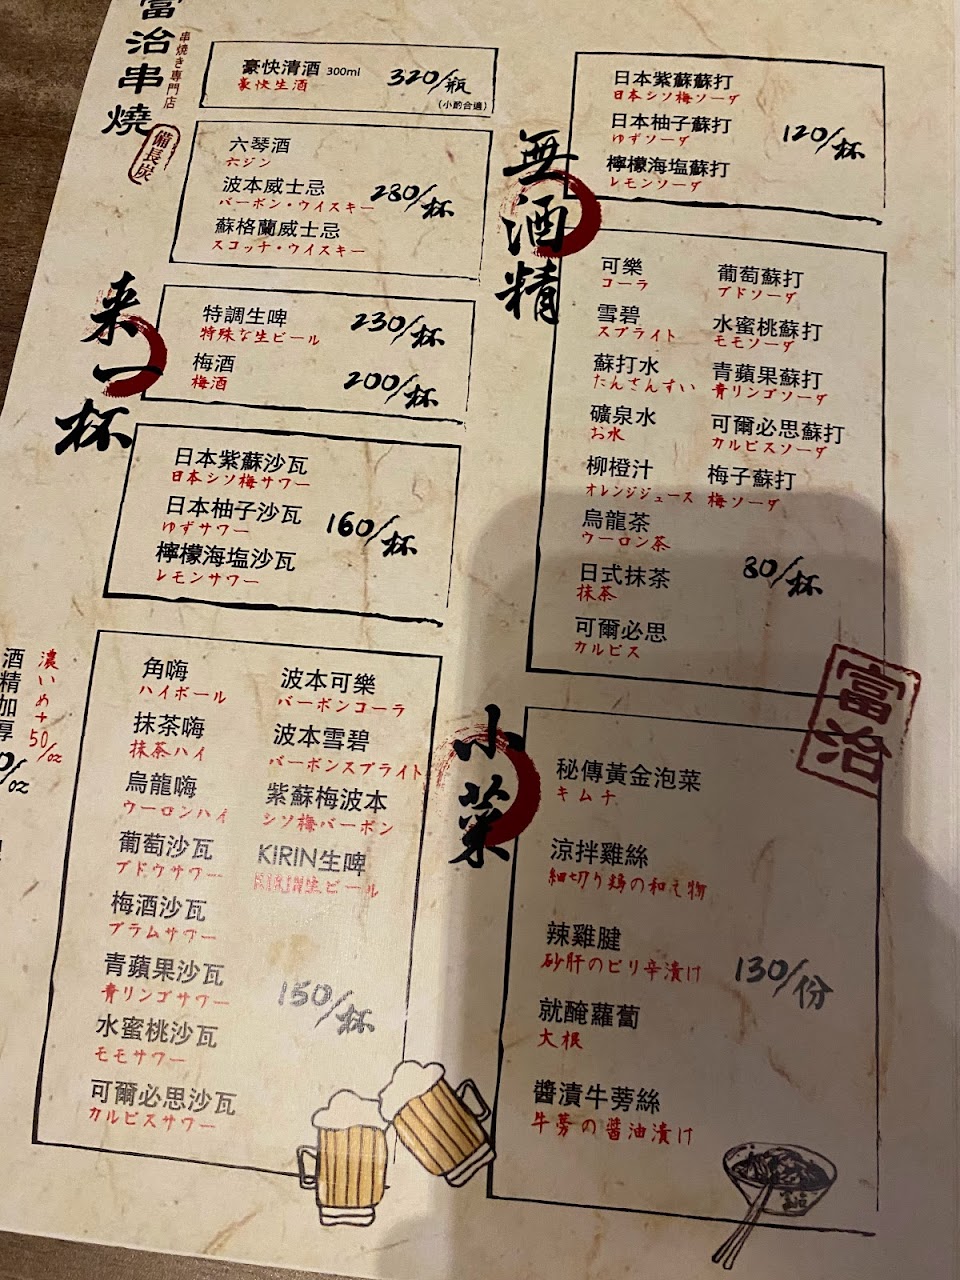 富治串燒
串焼き専門店
備長炭
来一杯
豪快清酒 300ml 320/瓶
豪快生酒
(小酌合適)
六琴酒
六ジン
波本威士忌
バーボン・ウイスキー
280/杯
蘇格蘭威士忌
スコッチ・ウイスキー
特調生啤 230/杯
特殊な生ビール
梅酒 200/杯
梅酒
日本紫蘇沙瓦
日本シソ梅サワー
日本柚子沙瓦
ゆずサワー
160/杯
檸檬海塩沙瓦
レモンサワー
酒精加厚
濃いめ+50/oz
/oz
角嗨
ハイボール
抹茶嗨
抹茶ハイ
烏龍嗨
ウーロンハイ
葡萄沙瓦
ブドウサワー
梅酒沙瓦
プラムサワー
青蘋果沙瓦
青リンゴサワー
水蜜桃沙瓦
モモサワー
可爾必思沙瓦
カルピスサワー
波本可樂
バーボンコーラ
波本雪碧
バーボンスプライト
紫蘇梅波本
シソ梅バーボン
KIRIN生啤
KIRIN生ビール
150/杯
無酒精
日本紫蘇蘇打
日本シソ梅ソーダ
日本柚子蘇打
ゆずソーダ
120/杯
檸檬海塩蘇打
レモンソーダ
可樂
コーラ
雪碧
スプライト
蘇打水
たんさんすい
礦泉水
お水
柳橙汁
オレンジジュース
烏龍茶
ウーロン茶
日式抹茶
抹茶
可爾必思
カルピス
葡萄蘇打
ブドソーダ
水蜜桃蘇打
モモソーダ
青蘋果蘇打
青リンゴソーダ
可爾必思蘇打
カルピスソーダ
梅子蘇打
梅ソーダ
80/杯
富治
小菜
秘傳黃金泡菜
キムチ
涼拌雞絲
細切り鶏の和え物
辣雞腱
砂肝のピリ辛漬け
130/份
就醃蘿蔔
大根
醬漬牛蒡絲
牛蒡の醤油漬け